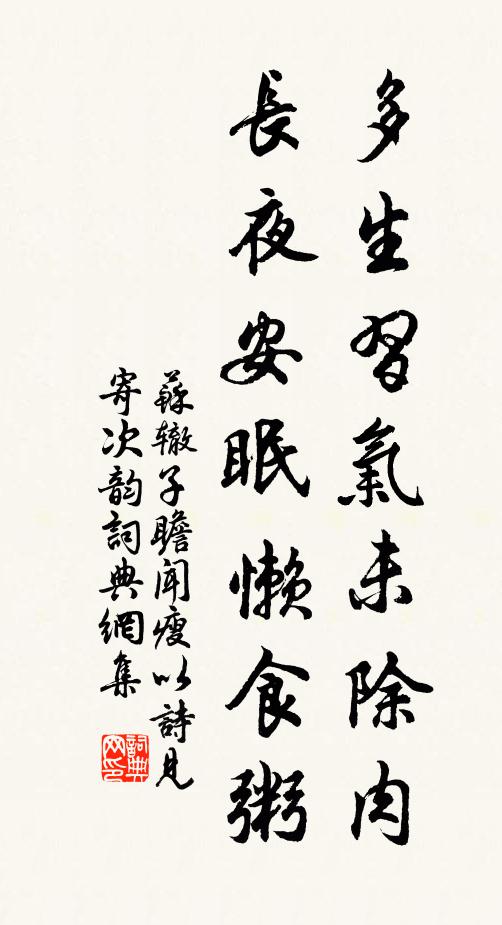 多生習氣未除肉
長夜安眠懶食粥
蘇辙子瞻聞瘦以詩見
寄次韵詞典網集
詞典
网印